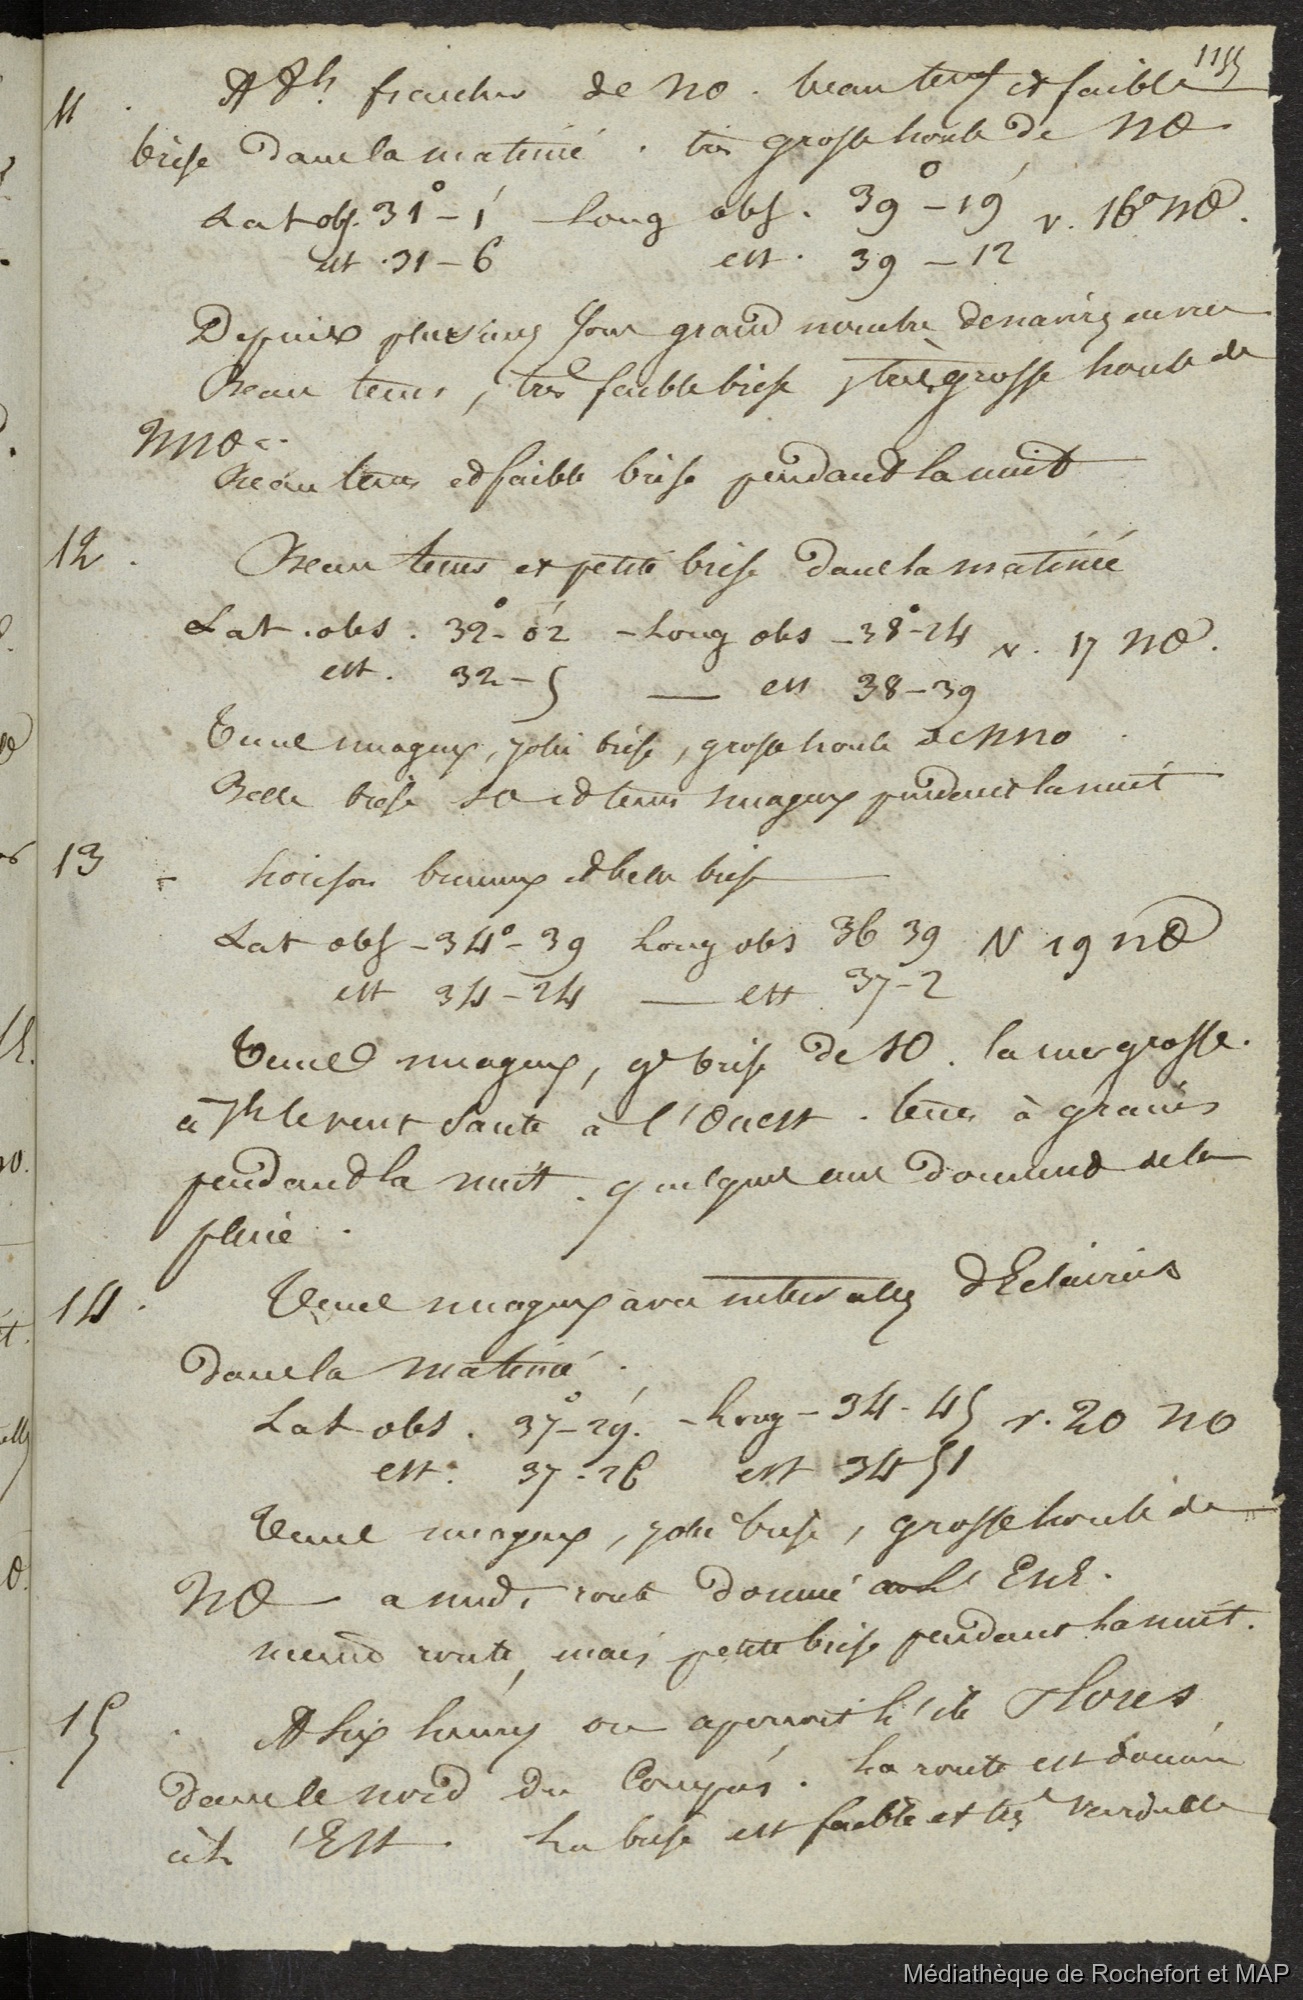 1155
11 . A 8h fraicheur de NO . beau tems et faible
brise dans la matinée . très grosse houle de NO
Lat obs. 31° - 1' - Long obs. 39° - 19' v. 16° NO.
est . 31 - 6 est . 39 - 12
Depuis plusieurs jours grand nombre de navires en vue
Beau tems, très faible brise, très grosse houle de
NNO .
Beau tems et faible brise pendant la nuit
12 . Beau tems et petite brise dans la matinée
Lat . obs . 32° - 02' - Long obs - 38° - 24 v . 17 NO .
est . 32 - 5 — est 38 - 39
Tems nuageux, jolie brise, grosse houle de NNO
Belle brise SO et tems nuageux pendant la nuit
13 - horison brumeux et belle brise
Lat obs - 34° - 39 Long obs 36 39 V 19 NO
est 34 - 24 — est 37 - 2
Tems nuageux, gde brise de SO . la mer grosse .
à 7h le vent saute à l'Ouest . tems à grains
pendant la nuit . quelques uns donnent de la
pluie .
14 . Tems nuageux avec intervalles d'Eclaircies
dans la matinée .
Lat obs . 37° - 29' . - Long - 34 - 45 v . 20 NO
est . 37 - 26 est 34 51
Tems nuageux, jolie brise, grosse houle de
NO a midi route donnée à l'ENE .
meme route, mais petite brise pendant la nuit .
15 . A six heures on aperçoit l'ile Flores
dans le nord du Compas . La route est donnée
à l'Est . La brise est faible et très